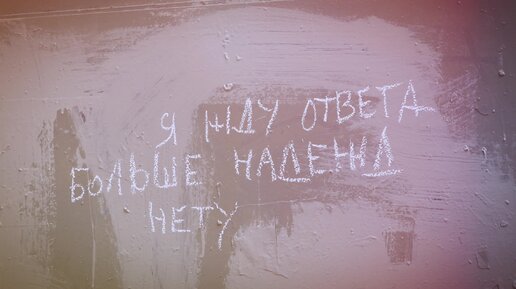 Я ЖДУ ОТВЕТА
БОЛЬШЕ НАДЕЖД
НЕТУ